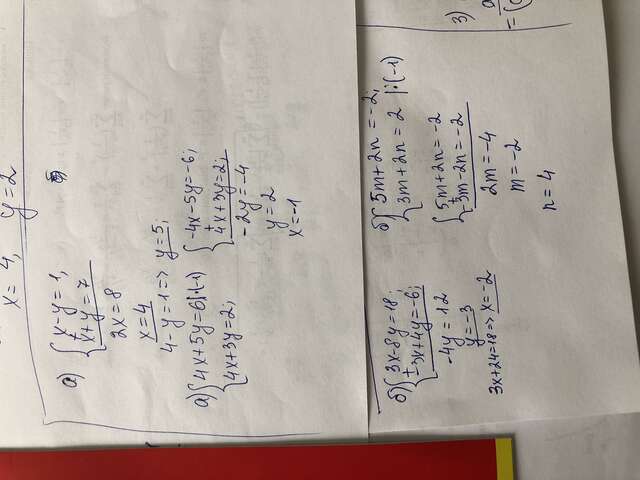 x = 4, y = 2
а) { x - y = 1,
+ x + y = 7
2x = 8
x = 4
4 - y = 1 => y = 5;
а) { 4x + 5y = 6 |·(-1)
4x + 3y = 2;
{ -4x - 5y = -6;
+ 4x + 3y = 2;
-2y = -4
y = 2
x = -1
б) { 3x - 8y = 18;
+ -3x + 4y = -6;
-4y = 12
y = -3
3x + 24 = 18 => x = -2
б) { 5m + 2n = -2;
3m + 2n = 2 |:(-1)
{ 5m + 2n = -2
+ -3m - 2n = -2
2m = -4
m = -2
n = 4
3)